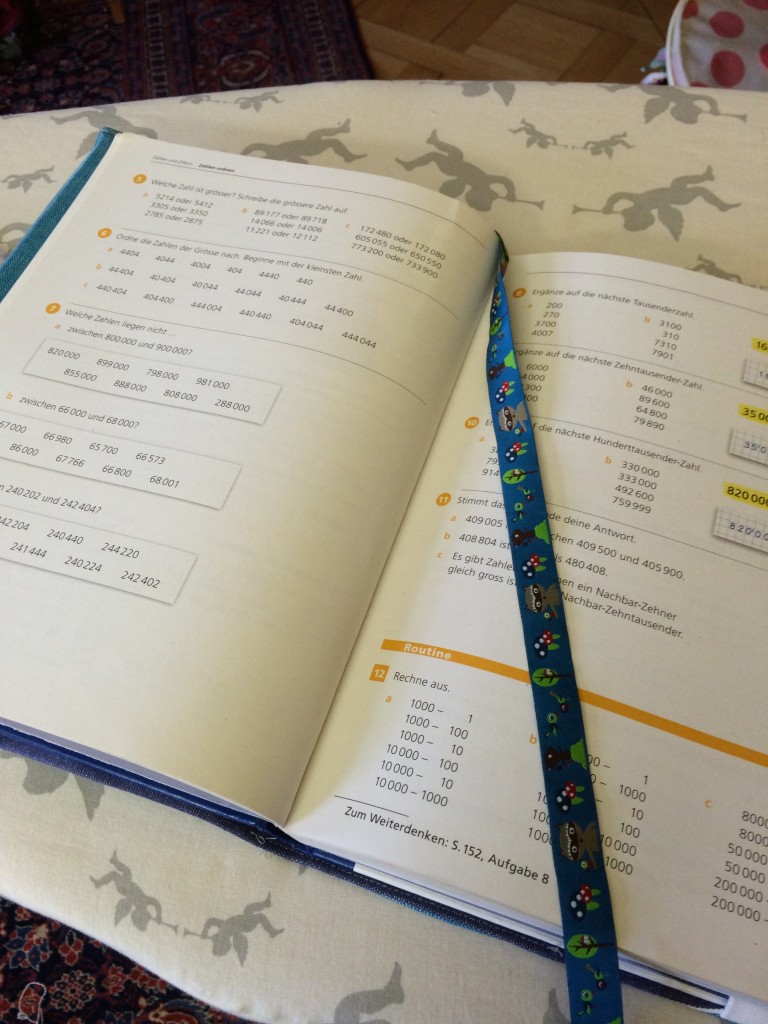 Zahlen und Ziffern Zahlen ordnen
5 Welche Zahl ist grösser? Schreibe die grössere Zahl auf.
a 5214 oder 5412
3305 oder 3350
2785 oder 2875
b 89 177 oder 89 718
14 066 oder 14 006
11 221 oder 12 112
c 172 480 oder 172 080
605 055 oder 650 550
773 200 oder 733 900
6 Ordne die Zahlen der Grösse nach. Beginne mit der kleinsten Zahl.
a 4404 4044 4004 404 4440 440
b 44 404 40 404 40 044 44 044 40 444 44 400
c 440 404 404 400 444 004 440 440 404 044 444 044
7 Welche Zahlen liegen nicht ...
a zwischen 800 000 und 900 000?
820 000 899 000 798 000 981 000
855 000 888 000 808 000 288 000
b zwischen 66 000 und 68 000?
67 000 66 980 65 700 66 573
86 000 67 766 66 800 68 001
n 240 202 und 242 404?
242 204 240 440 244 220
241 444 240 224 242 402
8 Ergänze auf die nächste Tausenderzahl.
a 200
270
3700
4007
b 3100
310
7310
7901
16
rgänze auf die nächste Zehntausender-Zahl.
6000
b 46 000
89 600
64 800
79 890
35 00
35'0
10 E f die nächste Hunderttausender-Zahl.
a
914
b 330 000
333 000
492 600
759 999
820 000
820'00
11 Stimmt das de deine Antwort.
a 409 005 chen 409 500 und 405 900.
b 408 804 ist ls 480 408.
c Es gibt Zahle en ein Nachbar-Zehner
gleich gross is Nachbar-Zehntausender.
Routine
12 Rechne aus.
a 1000 – 1
1000 – 100
1000 – 10
10 000 – 100
10 000 – 10
10 000 – 1000
b 00 – 1
– 1000
10
100
10 000
1000
c 8000
8000
50 000
50 000
200 000 –
200 000 –
Zum Weiterdenken: S. 152, Aufgabe 8